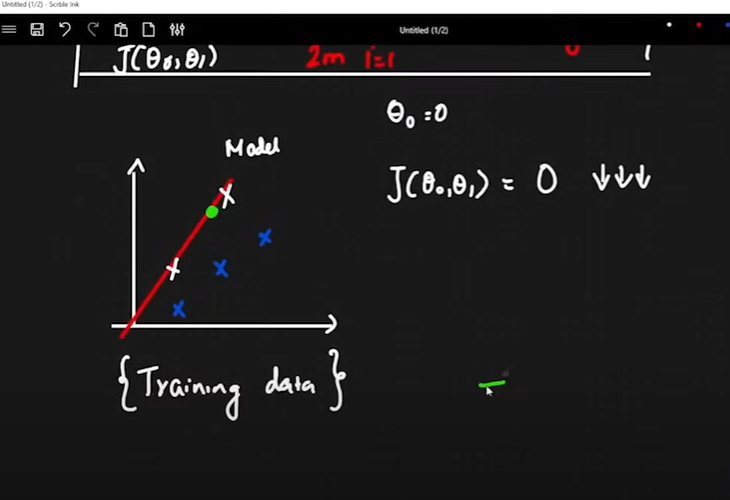 Untitled (1/2) - Scrble Ink
Untitled (1/2)
J(θ₀,θ₁) 2m i=1
θ₀ = 0
Model
J(θ₀,θ₁) = 0 ↓↓↓
{Training data}